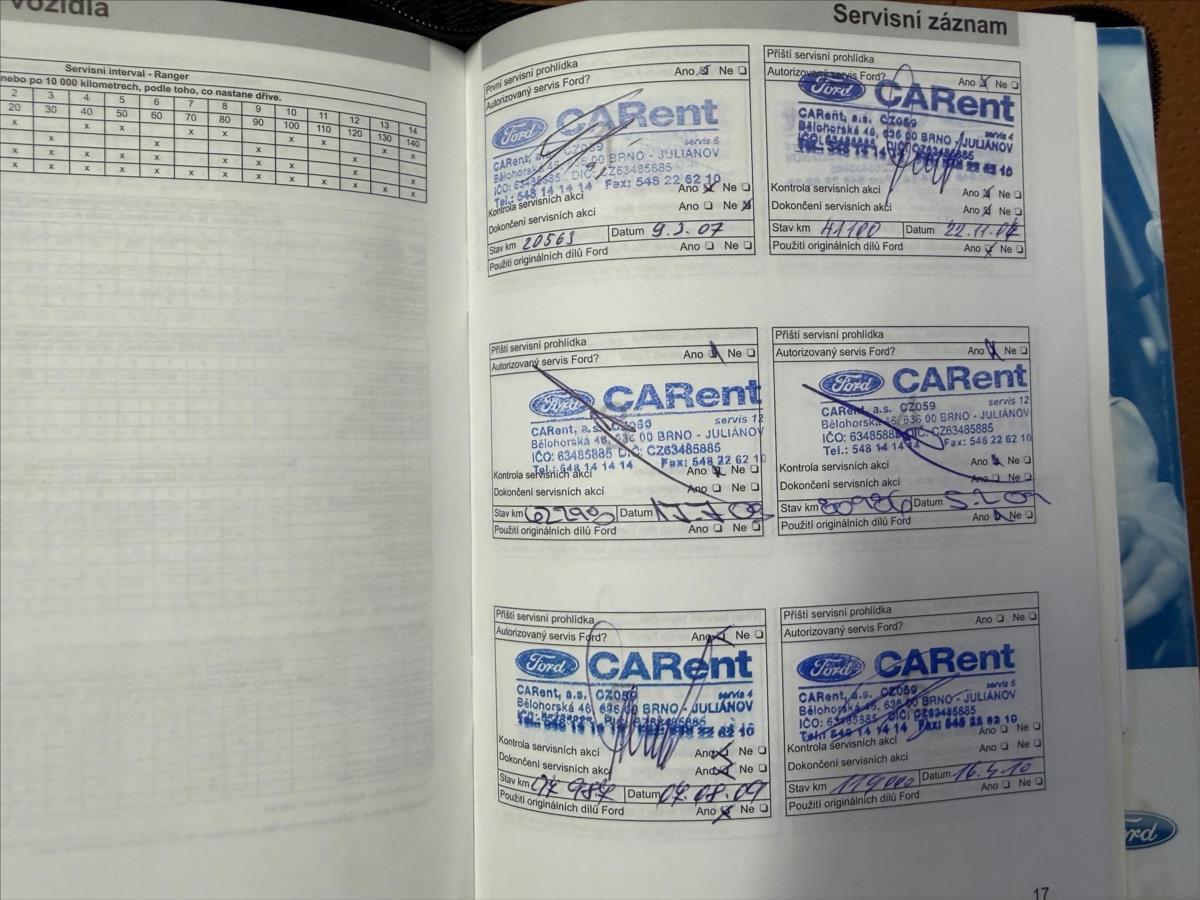 vozidla
Servisní interval - Ranger
nebo po 10 000 kilometrech, podle toho, co nastane dříve.
2 3 4 5 6 7 8 9 10 11 12 13 14
20 30 40 50 60 70 80 90 100 110 120 130 140
Servisní záznam
První servisní prohlídka
Autorizovaný servis Ford? Ano Ne
Ford CARent
servis 5
CARent, a.s. CZ059
Bělohorská 46, 636 00 BRNO - JULIÁNOV
IČO: 63485885 DIČ: CZ63485885
Tel.: 548 14 14 14 Fax: 548 22 62 10
Kontrola servisních akcí Ano Ne
Dokončení servisních akcí Ano Ne
Stav km 20563 Datum 9.3.07
Použití originálních dílů Ford Ano Ne
Příští servisní prohlídka
Autorizovaný servis Ford? Ano Ne
Ford CARent
servis 4
CARent, a.s. CZ059
Bělohorská 46, 636 00 BRNO - JULIÁNOV
Kontrola servisních akcí Ano Ne
Dokončení servisních akcí Ano Ne
Stav km 41100 Datum 22.11.07
Použití originálních dílů Ford Ano Ne
Příští servisní prohlídka
Autorizovaný servis Ford? Ano Ne
Ford CARent
servis 12
CARent, a.s. CZ059
Bělohorská 46, 636 00 BRNO - JULIÁNOV
IČO: 63485885 DIČ: CZ63485885
Tel.: 548 14 14 14 Fax: 548 22 62 10
Kontrola servisních akcí Ano Ne
Dokončení servisních akcí Ano Ne
Stav km Datum
Použití originálních dílů Ford Ano Ne
Příští servisní prohlídka
Autorizovaný servis Ford? Ano Ne
Ford CARent
servis 12
CARent, a.s. CZ059
Bělohorská 46, 636 00 BRNO - JULIÁNOV
IČO: 63485885 DIČ: CZ63485885
Tel.: 548 14 14 14 Fax: 548 22 62 10
Kontrola servisních akcí Ano Ne
Dokončení servisních akcí Ano Ne
Stav km 80986 Datum
Použití originálních dílů Ford Ano Ne
Příští servisní prohlídka
Autorizovaný servis Ford? Ano Ne
Ford CARent
servis 4
CARent, a.s. CZ059
Bělohorská 46, 636 00 BRNO - JULIÁNOV
Kontrola servisních akcí Ano Ne
Dokončení servisních akcí Ano Ne
Stav km Datum 07.08.09
Použití originálních dílů Ford Ano Ne
Příští servisní prohlídka
Autorizovaný servis Ford? Ano Ne
Ford CARent
servis 5
CARent, a.s. CZ059
Bělohorská 46, 636 00 BRNO - JULIÁNOV
IČO: 63485885 DIČ: CZ63485885
548 14 14 14 Fax: 548 22 62 10
Kontrola servisních akcí Ano Ne
Dokončení servisních akcí Ano Ne
Stav km 119000 Datum 16.4.10
Použití originálních dílů Ford Ano Ne
17